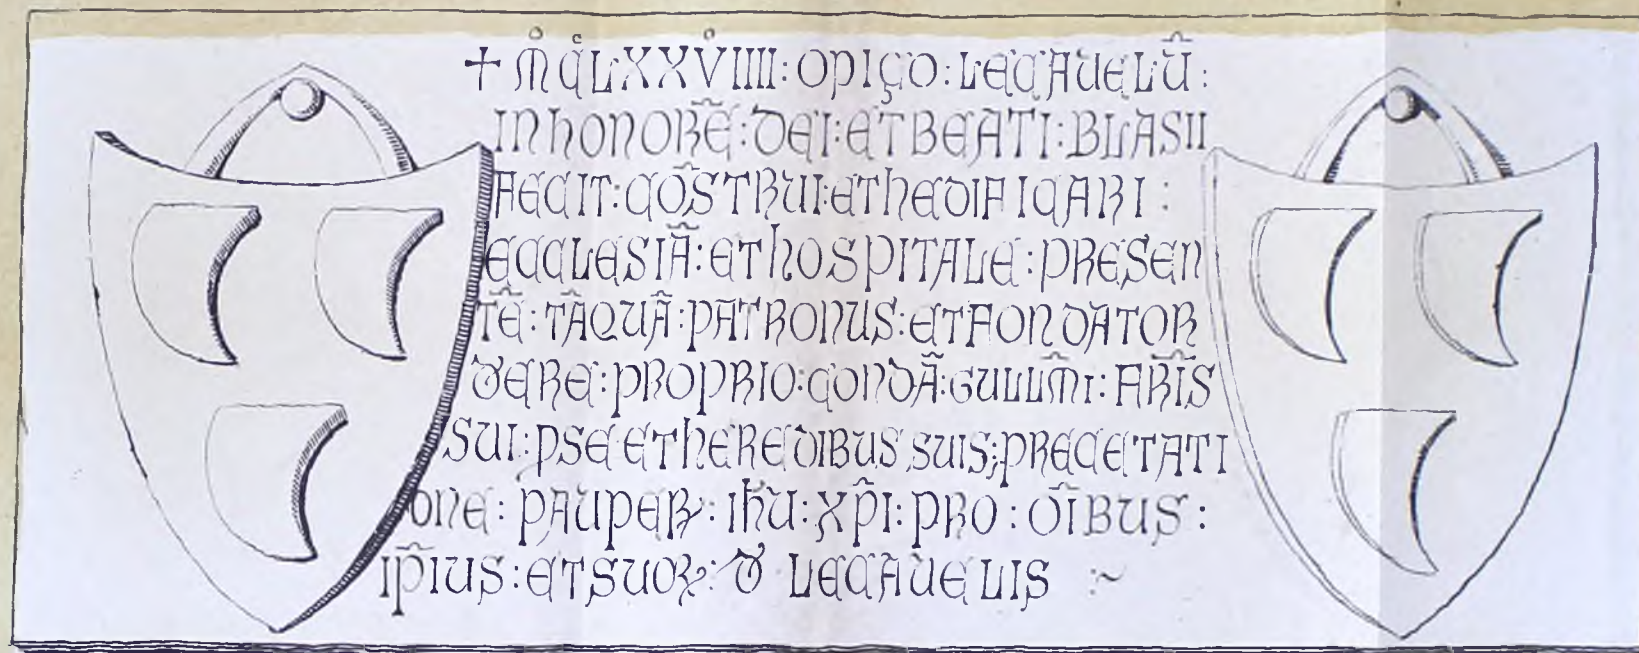 + M̊ C̊LXXV̊IIII : OPIÇO : LECAVELŨ :
IN HONORẼ : DEI : ET BEATI : BLASII
FECIT : CÕSTRUI : ET HEDIFICARI :
ECCLESIÃ : ET HOSPITALE : PRESEN
TẼ : TÃQUÃ : PATRONUS : ET FONDATOR
DE ERE : PROPRIO : CONDÃ : GULLM̃I : FRĨS
SUI : PSE ET HEREDIBUS SUIS ; PRECETATI
ONE : PAUPERꝜ : IHŨ : XP̃I : PRO : OĨBUS :
IP̃IUS : ET SUOꝜ : D LECAVELIS :~